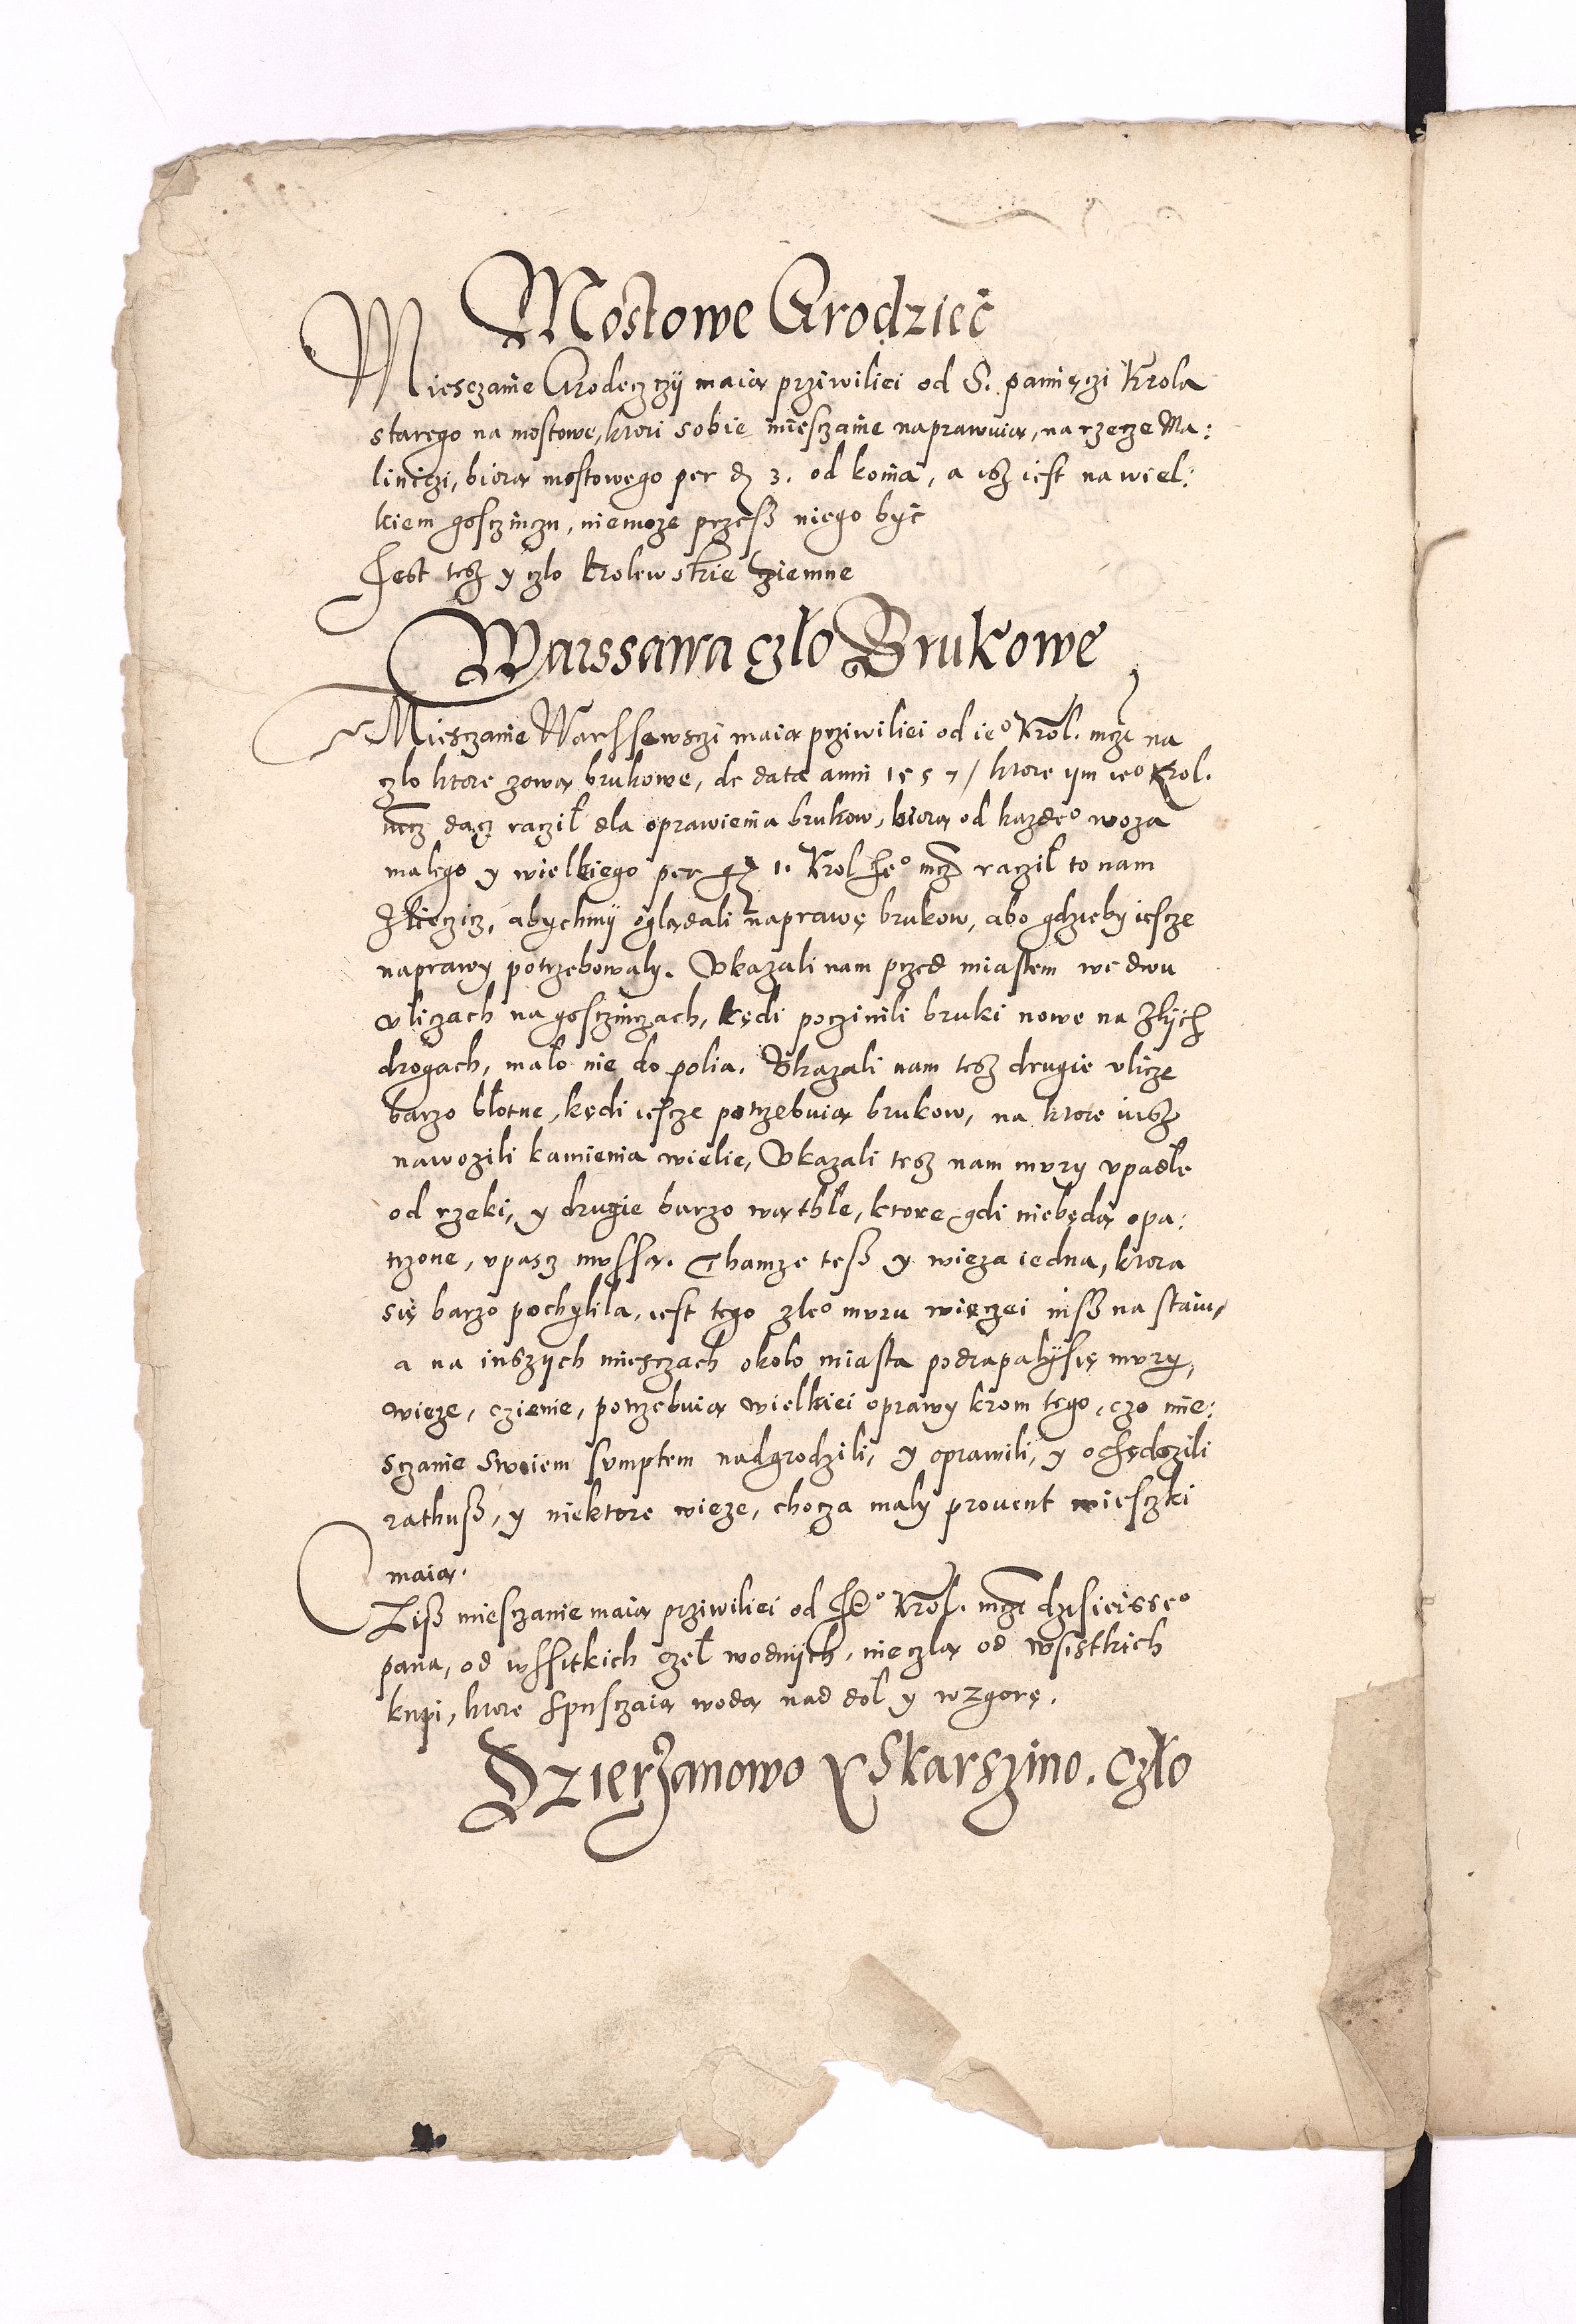 Mostowe Grodziec
Miesczanie Grodeczczÿ maią prziwiliei od S. pamięczi Krola
starego na mostowe, ktori sobie miesczanie naprawuią, na rzecze Ma:
liniczi, biorą mostowego per ₰ 3. od konia, a isz iest na wiel:
kiem gosczinczu, niemoze przesß niego być
Jest tesz y czlo krolewskie ziemne
Warssawa czło Brukowe
Miesczanie Warssewsczi maią prziwiliei od ieº Krol. mczi na
czlo ktore zową brukowe, de data anni 1557/ ktore ym ieº Krol.
mcz dacz raczil dla oprawienia brukow, biorą od kazdeº woza
malego y wielkiego per gr 1. Krol Jeº mcz raczil to nam
zlieczicz, abychmÿ oglądali naprawę brukow, abo gdzieby iescze
naprawy potrzebowaly. Vkazali nam przed miastem we dwu
vliczach na gosczinczach, kędi poczinili bruki nowe na złÿch
drogach, mało nie do polia. Vkazali nam tesz drugie vlicze
barzo błotne, kędi iescze potrzebuią brukow, na ktore iusz
nawozili kamienia wielie, Vkazali tesz nam mury vpadłe
od rzeki, y drugie barzo wąthłe, ktore gdi niebędą opa:
trzone, vpascz mussą. Thamze tesß y wieza iedna, ktora
się barzo pochylila, iest tego zleº muru więczei nisß na staiu,
a na inszych miesczach około miasta podrapalÿ się mury,
wieze, czienie, potrzebuią wielkiei oprawy krom tego, czo mie:
sczanie swoiem sumptem nadgrodzili, y oprawili, y ochędozili
rathusß, y niektore wieze, chocza maly prouent miesczki
maią.
Cizß miesczanie maią prziwiliei od Jeº Krol. mczi dzisieisseº
pana, od wssitkich czeł wodnÿch, nie czlą od wsistkich
kupi, ktore spusczaią wodą nad doł y wzgorę.
Dzierzanowo y Skarszino. czło